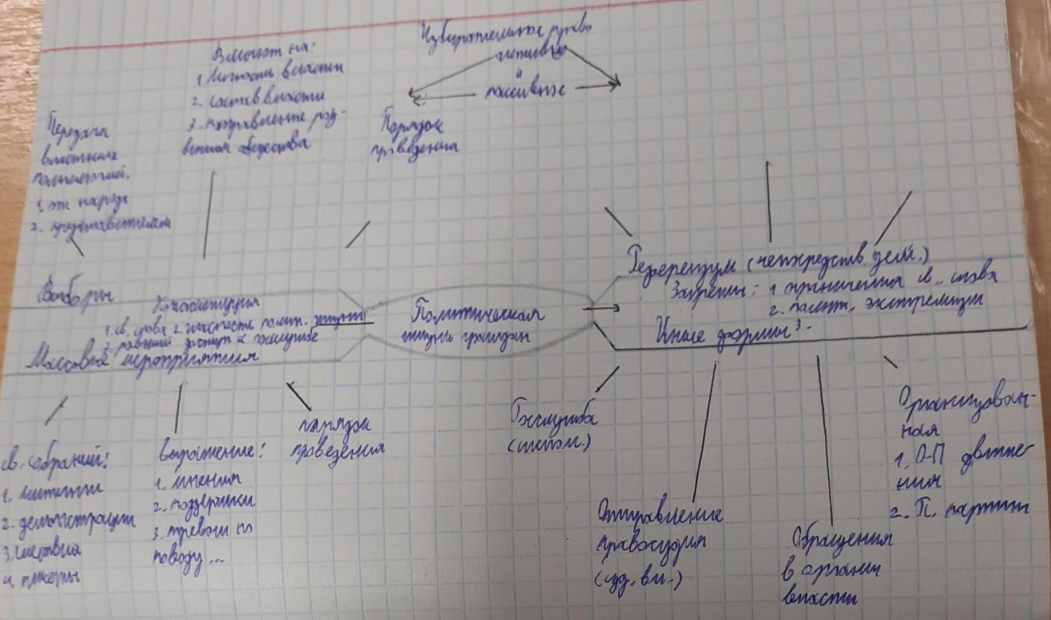 Избирательное право
активно
и
пассивное
Влияют на:
1. Личность власти
2. состав власти
3. направление раз-
вития общества
Порядок
проведения
Передача
властных
полномочий.
1. от народа
2. представителям
Выборы
Конституция
1. св. слова 2. полит.
3. равный доступ к госслужбе
Массовые мероприятия
Политическая
жизнь граждан
Референдум (непосредств. дем.)
Запреты: 1. ограничения св. слова
2. полит. экстремизм
Иные формы
св. собраний:
1. митинги
2. демонстрации
3. шествия
4. пикеты
выражение:
1. мнения
2. поддержки
3. требования по
поводу...
порядок
проведения
Госслужба
Отправление
правосудия
(суд. вл.)
Обращения
в органы
власти
Организован-
ная
1. О-П движе-
ния
2. П. партии